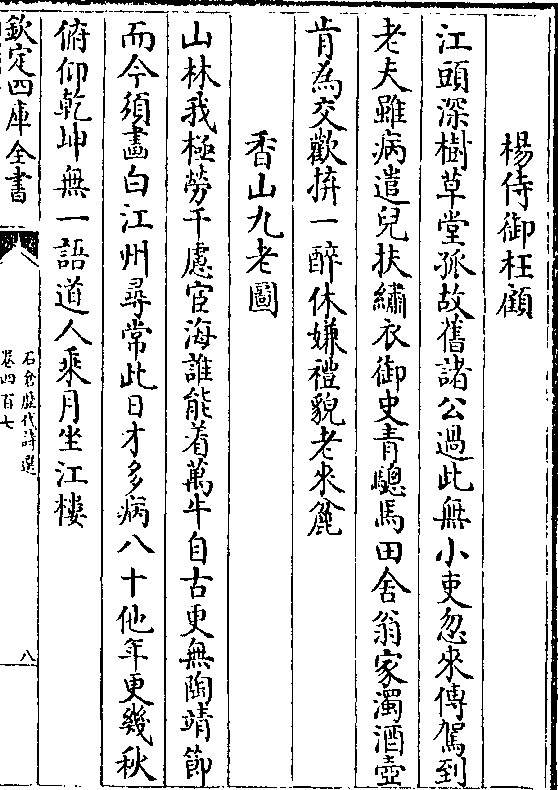 楊侍御枉顧
江頭深樹草堂孤故舊諸公過此無小吏忽來傳駕到
老夫雖病遣兒扶繡衣御史青驄馬田舍翁家濁酒壺
肯為交歡拚一醉休嫌禮貌老來麄
香山九老圖
山林我極勞千慮宦海誰能着萬牛自古更無陶靖節
而今須畫白江州尋常此日才多病八十他年更幾秋
俯仰乾坤無一語道人乘月坐江樓
欽定四庫全書
石倉歷代詩選
卷四百七
八